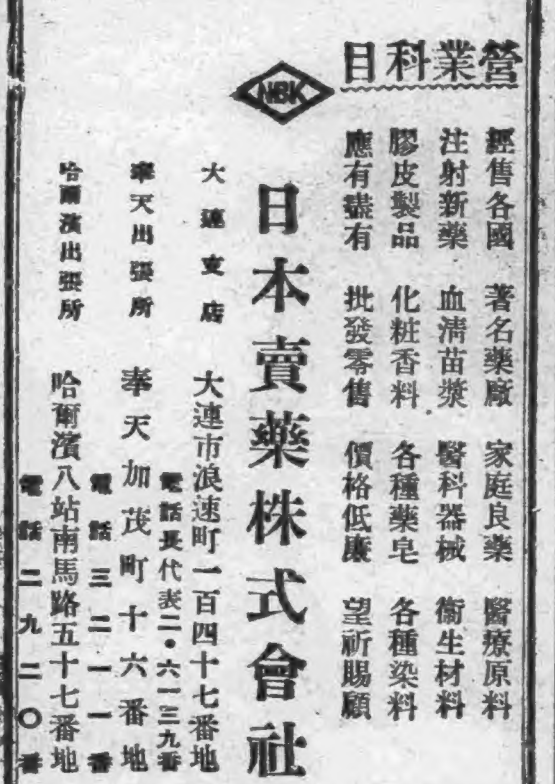 營業科目
經售各國 著名藥廠 家庭良藥 醫療原料
注射新藥 血淸苗漿 醫科器械 衞生材料
膠皮製品 化粧香料 各種藥皂 各種染料
應有盡有 批發零售 價格低廉 望祈賜顧
NBK
日本賣藥株式會社
大連支店 大連市浪速町一百四十七番地
電話長代表二・六一三九番
奉天出張所 奉天加茂町十六番地
電話三二一一番
哈爾濱出張所 哈爾濱八站南馬路五十七番地
電話二九二〇番